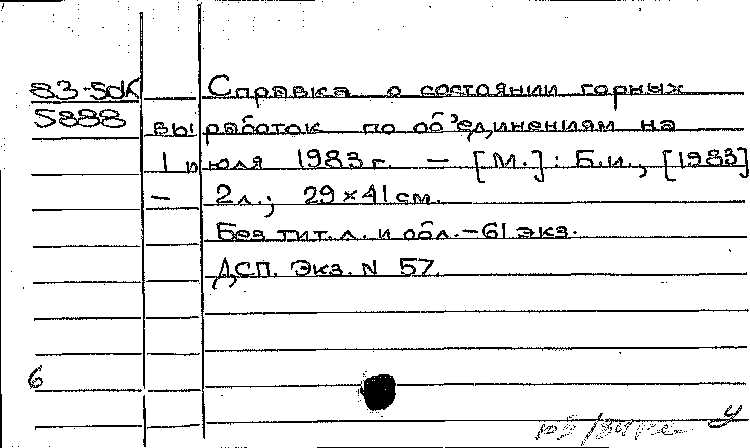 83-5dк Справка о состоянии горных
5888 выработок по об'единениям на
1 июля 1983 г. – [М.]: Б.и., [1983]
– 2 л.; 29×41 см.
Без тит. л. и обл. – 61 экз.
ДСП. Экз. N 57.
6